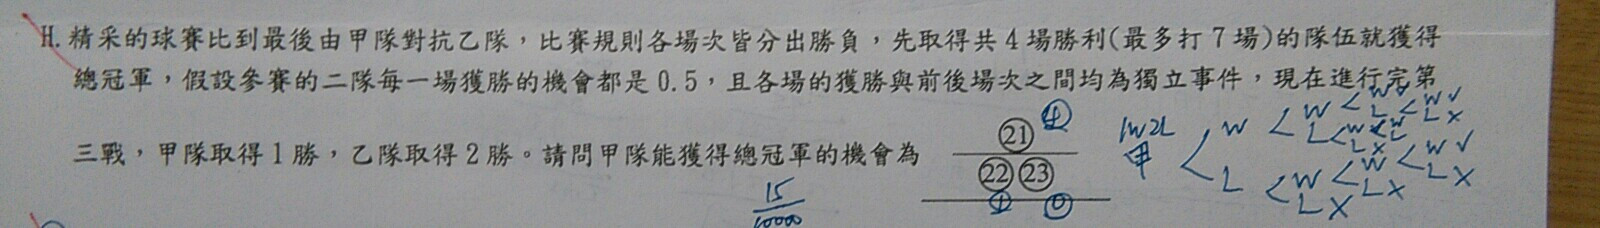 H. 精采的球賽比到最後由甲隊對抗乙隊，比賽規則各場次皆分出勝負，先取得共4場勝利(最多打7場)的隊伍就獲得
總冠軍，假設參賽的二隊每一場獲勝的機會都是0.5，且各場的獲勝與前後場次之間均為獨立事件，現在進行完第
三戰，甲隊取得1勝，乙隊取得2勝。請問甲隊能獲得總冠軍的機會為 ㉑
㉒㉓
15
10000
1W2L
甲
W
L